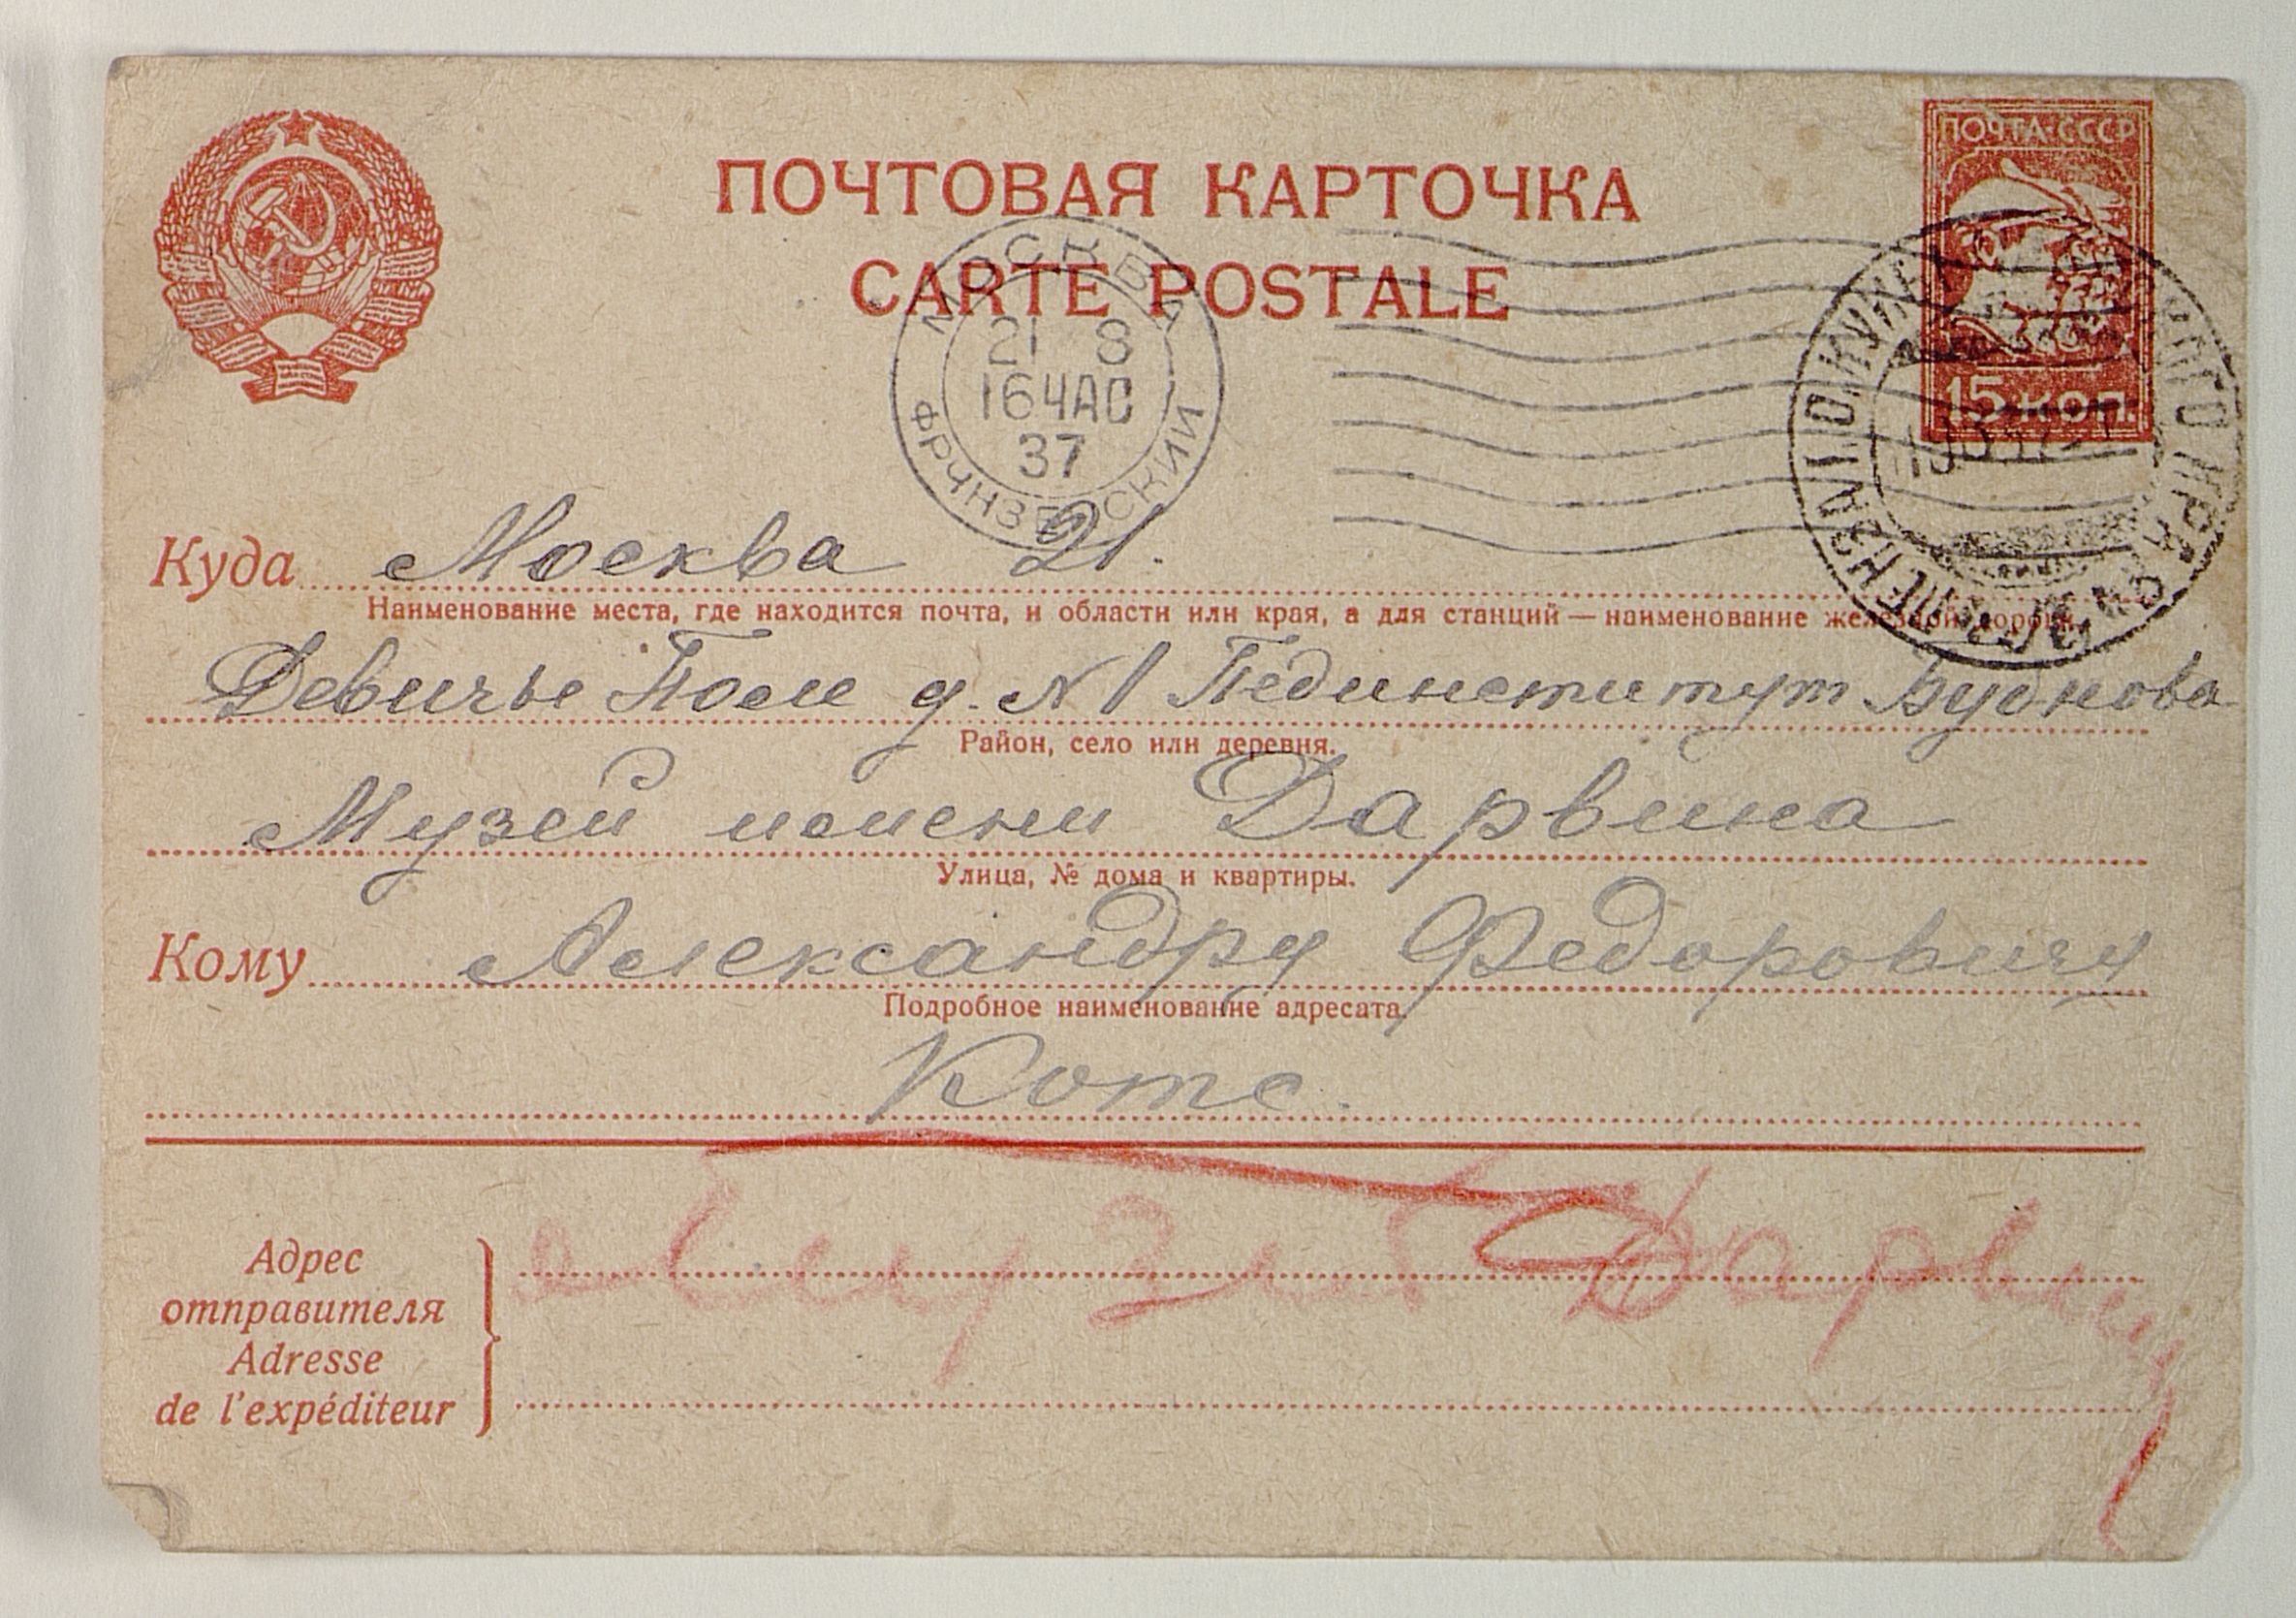 ПОЧТА СССР
ПОЧТОВАЯ КАРТОЧКА
CARTE POSTALE
15 КОП.
МОСКВА
21 8
16 ЧАС
37
ФРУНЗЕНСКИЙ
Куда Москва 21.
Наименование места, где находится почта, и области или края, а для станций — наименование железной дороги.
Девичье Поле д. № 1 Пединститут Бубнова
Район, село или деревня.
Музей имени Дарвина
Улица, № дома и квартиры.
Кому Александру Федоровичу
Подробное наименование адресата.
Котс.
Адрес
отправителя
Adresse
de l'expéditeur
Музей Дарвин